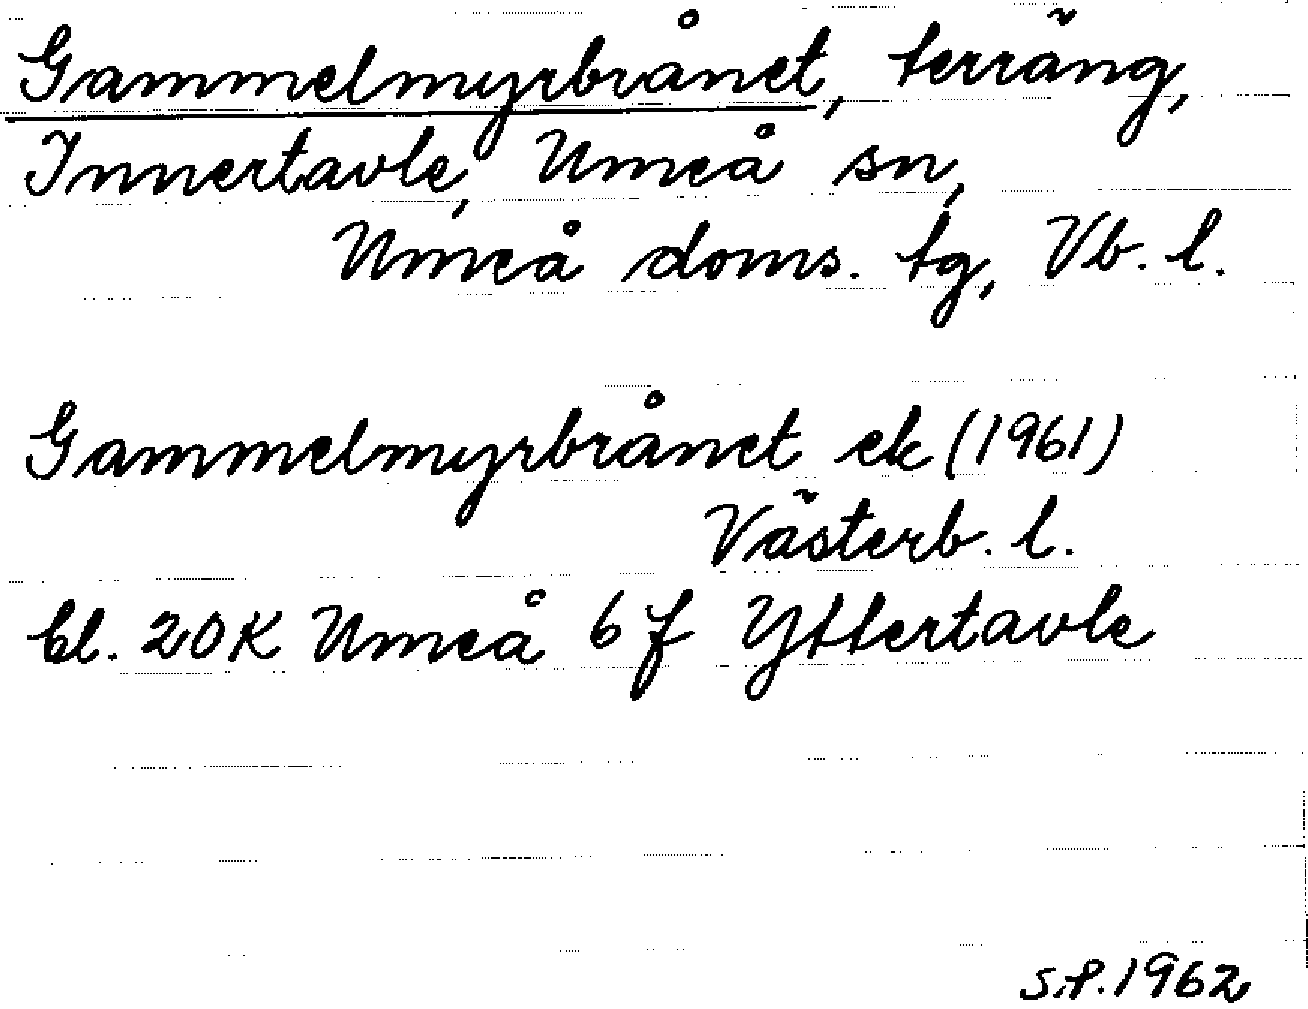 Gammelmyrbrånet, terräng,
Innertavle, Umeå sn,
Umeå doms. tg, Vb. l.
Gammelmyrbrånet ek (1961)
Västerb. l.
bl. 20K Umeå 6f Yttertavle
S.P. 1962